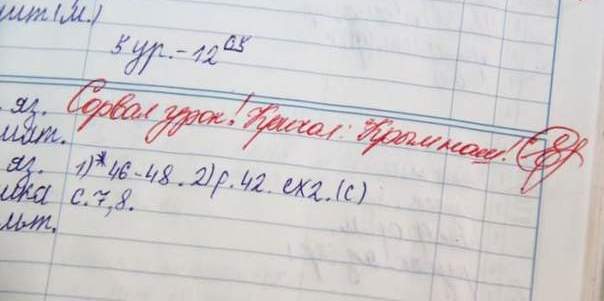 5 ур. - 12 05
яз. Сорвал урок! Кричал: Крым наш!
мат.
яз. 1)* 46-48. 2) p. 42. ex 2. (c)
ика с. 7, 8.
льт.